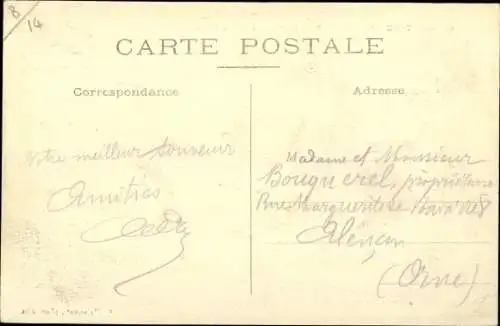 8/14
CARTE POSTALE
Correspondance
Adresse
Votre meilleur souvenir
Amitiés
Madame et Monsieur
Bouquerel, propriétaire
Rue Marguerite de Navarre 8
Alençon
(Orne)